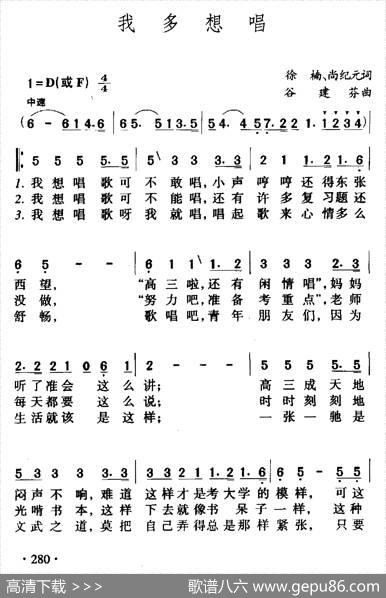 我多想唱
徐楠、尚纪元词
1=D(或F) 4/4
谷建芬曲
中速
(6 - 6 1 4. 6 | 6 5. 5 1 3. 5 | 5 4 5 7. 2 2 1 | 1 0 1 2 3 4 )
5 5 5 5. 5 | 5 5 5 3 3. 3 | 5 5 5 3 3. 3
1.我想唱 歌可 不敢唱,小声 哼哼 还得东张
2.我想唱 歌可 不能唱,还有 许多 复习题还
3.我想唱 歌呀 我就唱,唱起 歌来 心情多么
6 5 - | 6 1 1 1. 1 | 3 3 3 2. 3
西望, “高三啦,还有 闲情唱”,妈妈
没做, “努力吧,准备 考重点”,老师
舒畅, 歌唱吧,青年 朋友们,因为
2. 2 2 1 0 6 1 | 2 - - | 5 5 5 5. 5
听了准会 这么讲; 高三成天地
每天都要 这么说; 时时刻刻地
生活就该 是这样; 一张一弛是
5 3 3 3. 3 | 3 3 3 2 1. 2 1. 6 | 6 - 5. 5
闷声不响,难道 这样才是考大学的模样, 可这
光啃书本,这样 下去就像书 呆子一样, 这种
文武之道,莫把 自己弄得总是那样紧张, 只要
· 280 ·
高清下载 >>>
歌谱八六 www.gepu86.com